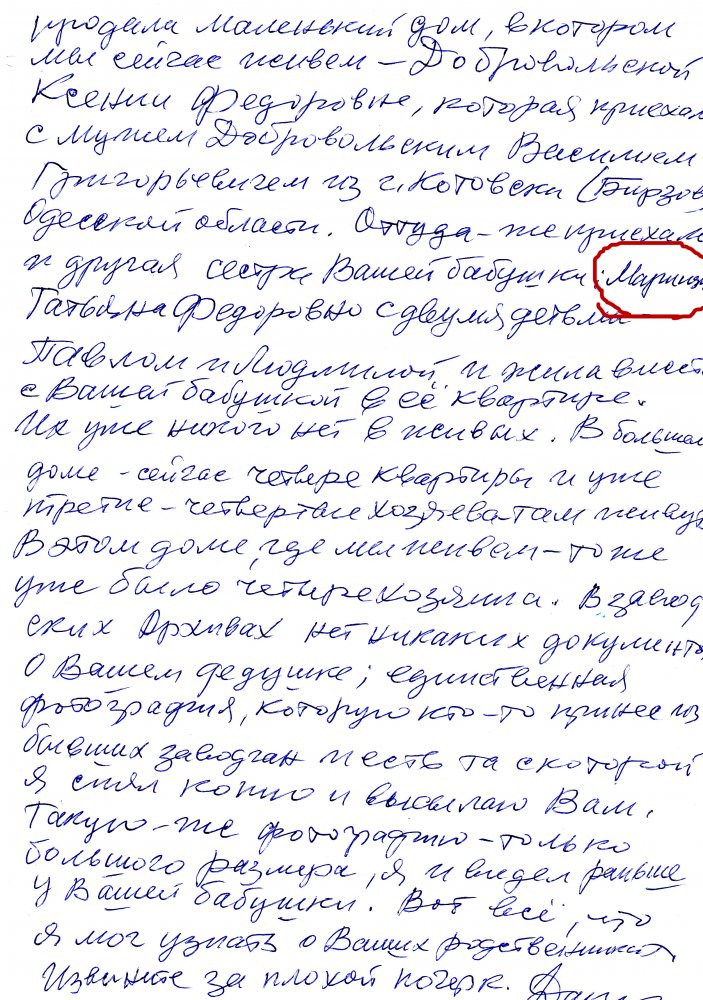 продала маленький дом, в котором
мы сейчас живем – Добровольской
Ксении Федоровне, которая приехал
с мужем Добровольским Василием
Григорьевичем из г. Котовска (Бирзов
Одесской области. Оттуда-же приехал
и другая сестра Вашей бабушки
Татьяна Федоровна с двумя детьми
Павлом и Людмилой, и жила вмест
с Вашей бабушкой в её квартире.
Их уже никого нет в живых. В большом
доме - сейчас четыре квартиры и уже
третие-четвертые хозяева там живут
В этом доме, где мы живем – тоже
уже было четыре хозяина. В завод
ских архивах нет никаких документо
о Вашем дедушке; единственная
фотография, которую кто-то принес из
бывших заводчан и есть та с которой
я снял копию и высылаю Вам.
Такую-же фотографию – только
большого размера, я и видел раньше
у Вашей бабушки. Вот всё, что
я мог узнать о Ваших родственниках.
Извините за плохой почерк.